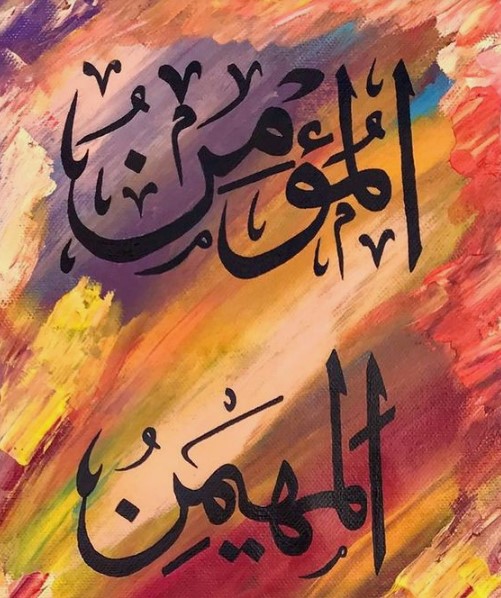 المُؤْمِنُ
المهيمِنُ